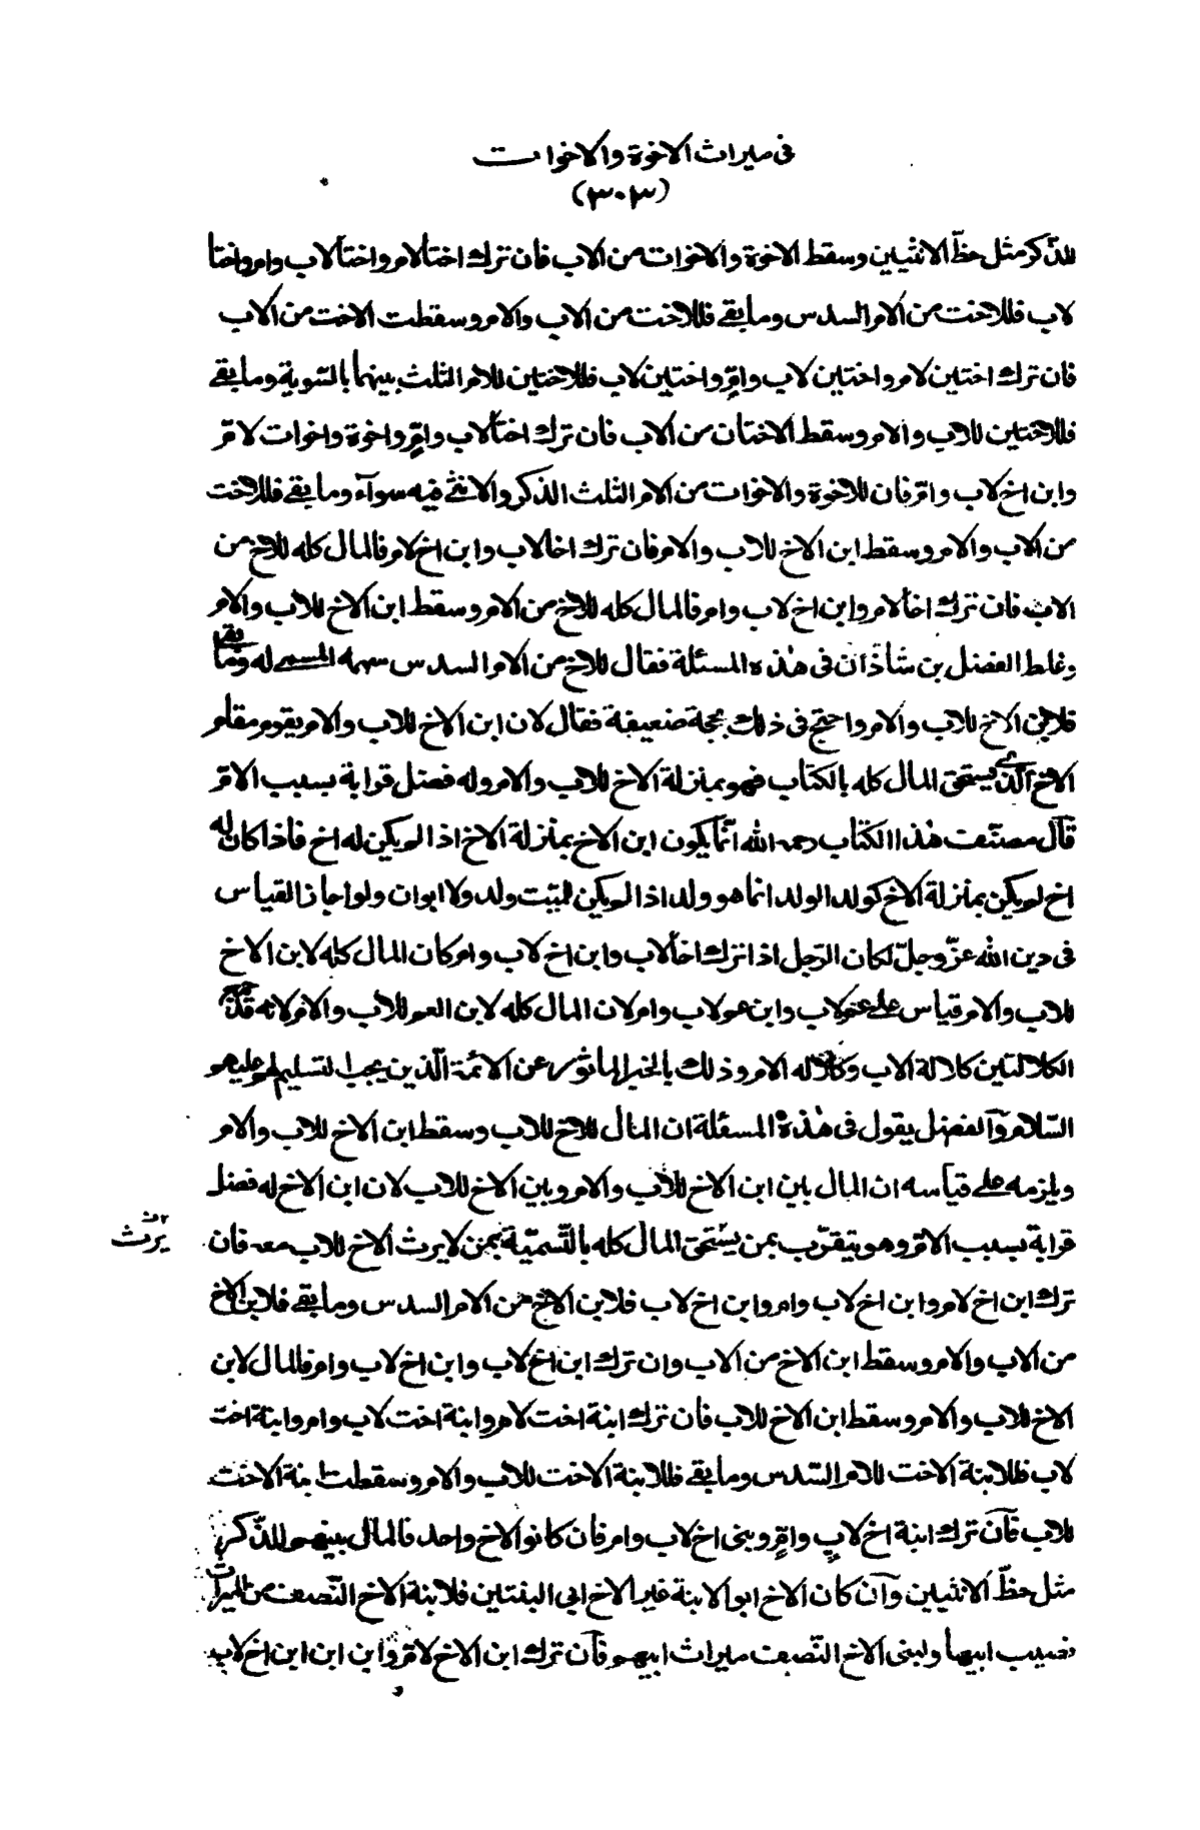 في ميراث الاخوة والاخوات
(٣٠٣)
للذّكر مثل حظّ الانثيين وسقط الاخوة والاخوات من الاب فان ترك اختا لام واختا لاب وام واختا
لاب فللاخت من الام السدس وما بقى فللاخت من الاب والام وسقطت الاخت من الاب
فان ترك اختين لام واختين لاب وامّ واختين لاب فللاختين للام الثلث بينهما بالسّوية وما بقى
فللاختين للاب والام وسقط الاختان من الاب فان ترك اختا لاب وامّ واخوة واخوات لامّ
وابن اخ لاب وامّ فان للاخوة والاخوات من الام الثلث الذكر والانثى فيه سوآء وما بقى فللاخت
من الاب والام وسقط ابن الاخ للاب والام فان ترك اخا لاب وابن اخ لام فالمال كله للاخ من
الاب فان ترك اخا لام وابن اخ لاب وام فالمال كله للاخ من الام وسقط ابن الاخ للاب والام
وغلط الفضل بن شاذان في هذه المسئلة فقال للاخ من الام السدس سهمه المسمى له وما بقى
فلابن الاخ للاب والام واحتج في ذلك بحجة ضعيفة فقال لان ابن الاخ للاب والام يقوم مقام
الاخ الّذى يستحق المال كله بالكتاب فهو بمنزلة الاخ للاب والام وله فضل قرابة بسبب الامّ
قال مصنّف هذا الكتاب رحمه الله انّما يكون ابن الاخ بمنزلة الاخ اذا لم يكن له اخ فاذا كان له
اخ لم يكن بمنزلة الاخ كولد الولد انما هو ولد اذا لم يكن للميّت ولد ولا ابوان ولو جاز القياس
في دين الله عزّ وجلّ لكان الرّجل اذا ترك اخا لاب وابن اخ لاب وام كان المال كله لابن الاخ
للاب والام قياس على عم لاب وابن عم لاب وام لان المال كله لابن العم للاب والام لانه قد جمع
الكلالتين كلالة الاب وكلالة الام وذلك بالخبر المأثور عن الائمة الّذين يجب التسليم لهم عليهم
السّلام والفضل يقول في هذه المسئلة ان المال للاخ للاب وسقط ابن الاخ للاب والام
ويلزمه على قياسه ان المال بين ابن الاخ للاب والام وبين الاخ للاب لان ابن الاخ له فضل
قرابة بسبب الامّ وهو يتقرّب بمن يستحق المال كله بالتّسمية بمن لا يرث الاخ للاب معه فان
يرث
ترك ابن اخ لام وابن اخ لاب وام وابن اخ لاب فلابن الاخ من الام السدس وما بقى فلابن الاخ
من الاب والام وسقط ابن الاخ من الاب وان ترك ابن اخ لاب وابن اخ لاب وام فالمال لابن
الاخ للاب والام وسقط ابن الاخ للاب فان ترك ابنة اخت لام وابنة اخت لاب وام وابنة اخت
لاب فلابنة الاخت للام السّدس وما بقى فللابنة الاخت للاب والام وسقطت ابنة الاخت
للاب فان ترك ابنة اخ لاب وامّ وبنى اخ لاب وام فان كانوا لاخ واحد فالمال بينهم للذّكر
مثل حظّ الانثيين وان كان الاخ ابو الابنة غير الاخ ابى البنتين فلابنة الاخ النّصف من الميراث
نصيب ابيها ولبنى الاخ النّصف ميراث ابيهم فان ترك ابن الاخ لامّ وابن ابن ابن اخ لاب